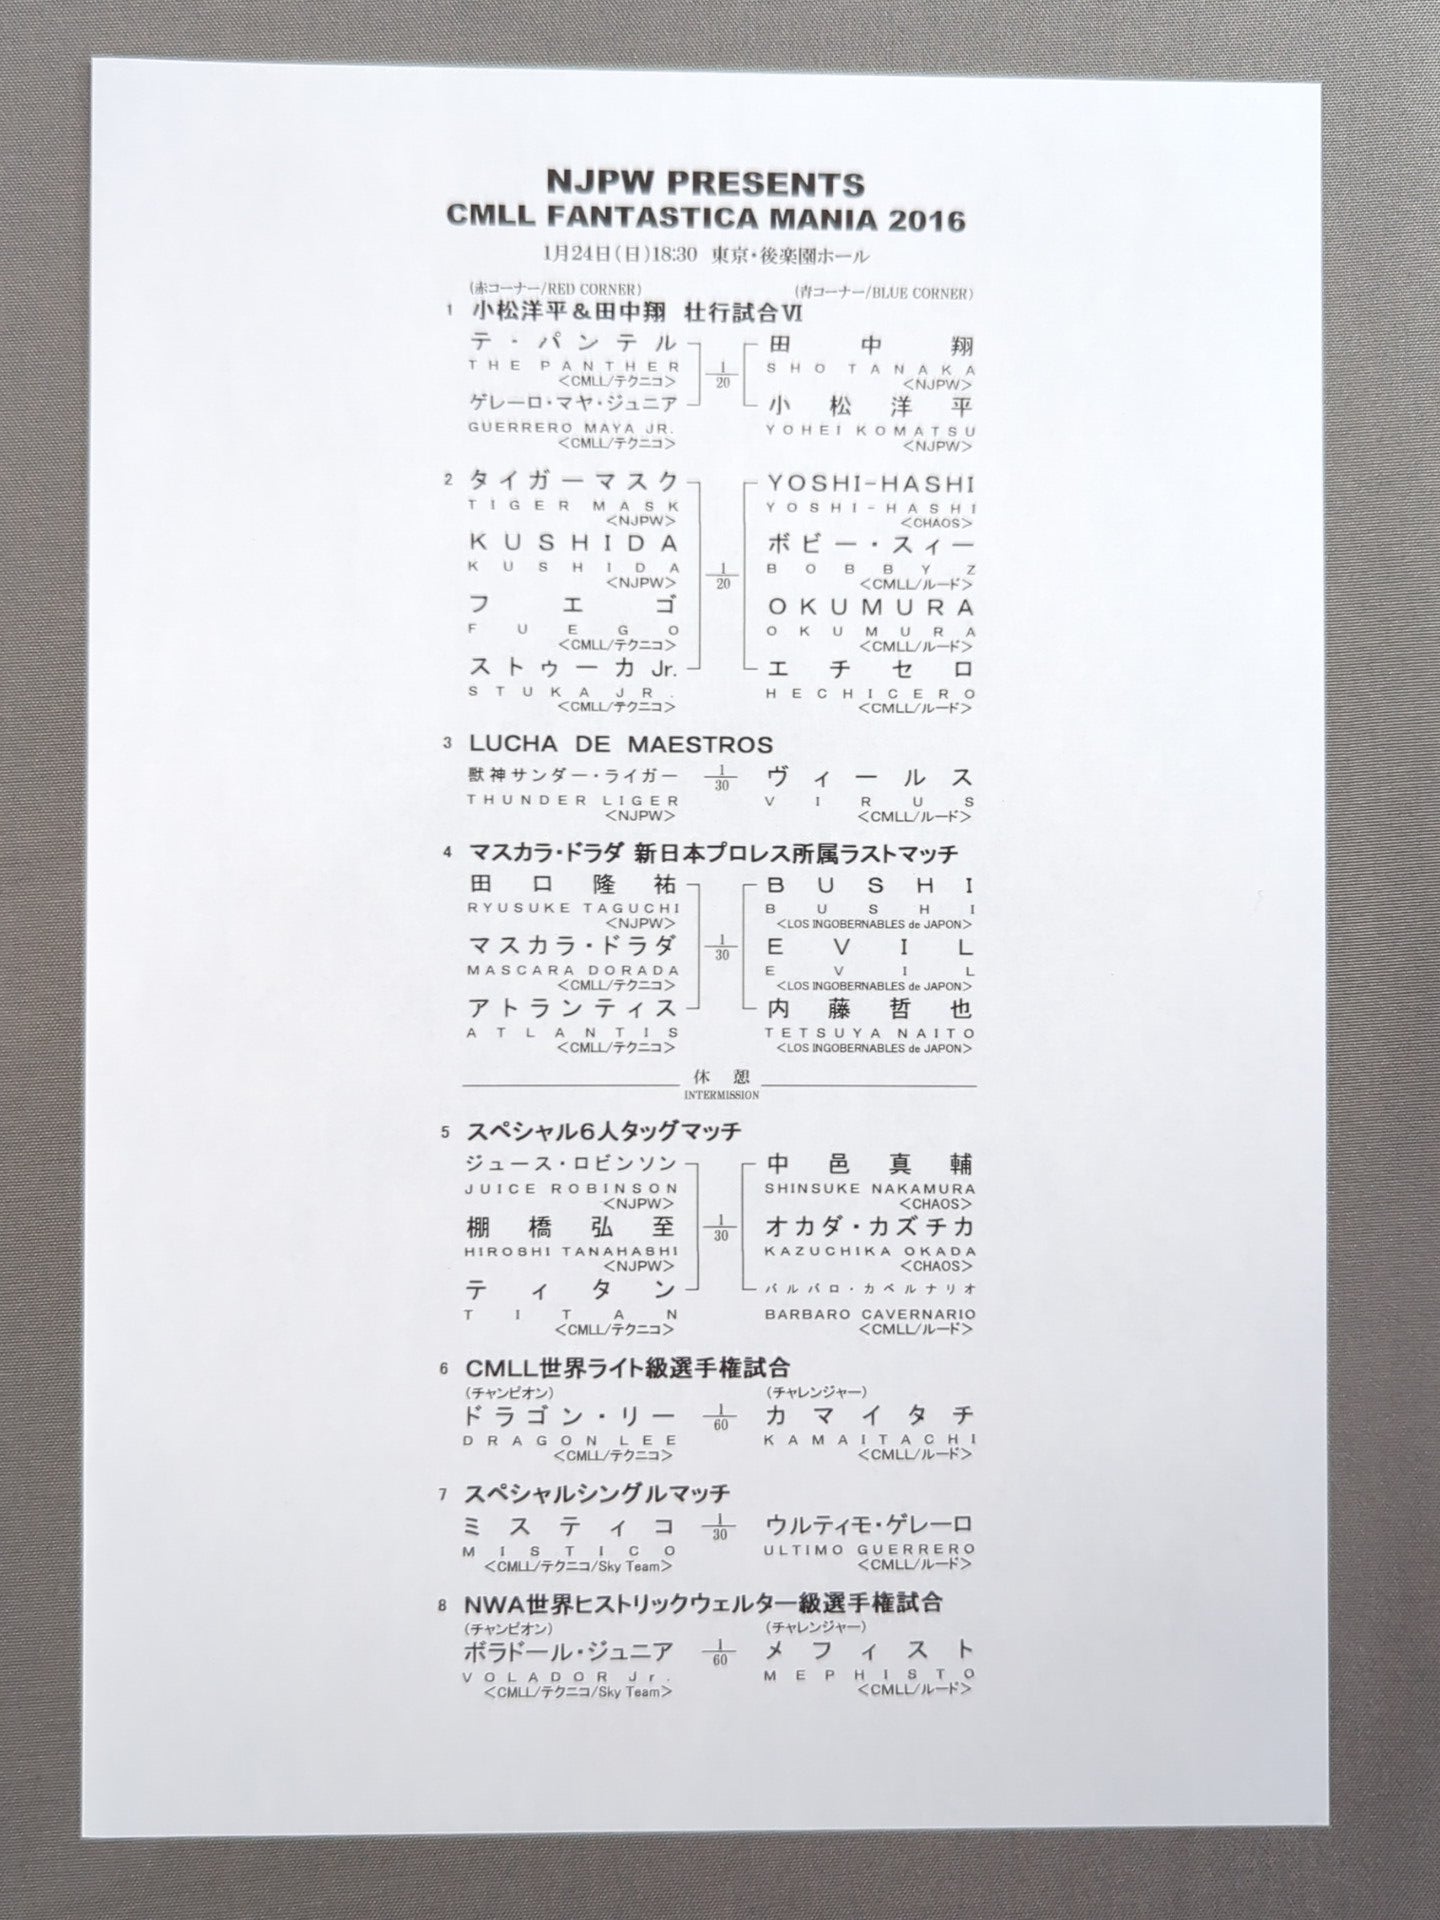 NJPW PRESENTS
CMLL FANTASTICA MANIA 2016
1月24日(日)18:30 東京・後楽園ホール
(赤コーナー/RED CORNER) (青コーナー/BLUE CORNER)
1 小松洋平&田中翔 壮行試合Ⅵ
テ・パンテル 田中翔
THE PANTHER SHO TANAKA
<CMLL/テクニコ> 1/20 <NJPW>
ゲレーロ・マヤ・ジュニア 小松洋平
GUERRERO MAYA JR. YOHEI KOMATSU
<CMLL/テクニコ> <NJPW>
2 タイガーマスク YOSHI-HASHI
TIGER MASK YOSHI-HASHI
<NJPW> <CHAOS>
KUSHIDA ボビー・スィー
KUSHIDA BOBBY Z
<NJPW> 1/20 <CMLL/ルード>
フエゴ OKUMURA
FUEGO OKUMURA
<CMLL/テクニコ> <CMLL/ルード>
ストゥーカJr. エチセロ
STUKA JR. HECHICERO
<CMLL/テクニコ> <CMLL/ルード>
3 LUCHA DE MAESTROS
獣神サンダー・ライガー 1/30 ヴィールス
THUNDER LIGER VIRUS
<NJPW> <CMLL/ルード>
4 マスカラ・ドラダ 新日本プロレス所属ラストマッチ
田口隆祐 BUSHI
RYUSUKE TAGUCHI BUSHI
<NJPW> <LOS INGOBERNABLES de JAPON>
マスカラ・ドラダ 1/30 EVIL
MASCARA DORADA EVIL
<CMLL/テクニコ> <LOS INGOBERNABLES de JAPON>
アトランティス 内藤哲也
ATLANTIS TETSUYA NAITO
<CMLL/テクニコ> <LOS INGOBERNABLES de JAPON>
休憩
INTERMISSION
5 スペシャル6人タッグマッチ
ジュース・ロビンソン 中邑真輔
JUICE ROBINSON SHINSUKE NAKAMURA
<NJPW> <CHAOS>
棚橋弘至 1/30 オカダ・カズチカ
HIROSHI TANAHASHI KAZUCHIKA OKADA
<NJPW> <CHAOS>
ティタン バルバロ・カベルナリオ
TITAN BARBARO CAVERNARIO
<CMLL/テクニコ> <CMLL/ルード>
6 CMLL世界ライト級選手権試合
(チャンピオン) (チャレンジャー)
ドラゴン・リー 1/60 カマイタチ
DRAGON LEE KAMAITACHI
<CMLL/テクニコ> <CMLL/ルード>
7 スペシャルシングルマッチ
ミスティコ 1/30 ウルティモ・ゲレーロ
MISTICO ULTIMO GUERRERO
<CMLL/テクニコ/Sky Team> <CMLL/ルード>
8 NWA世界ヒストリックウェルター級選手権試合
(チャンピオン) (チャレンジャー)
ボラドール・ジュニア 1/60 メフィスト
VOLADOR Jr. MEPHISTO
<CMLL/テクニコ/Sky Team> <CMLL/ルード>